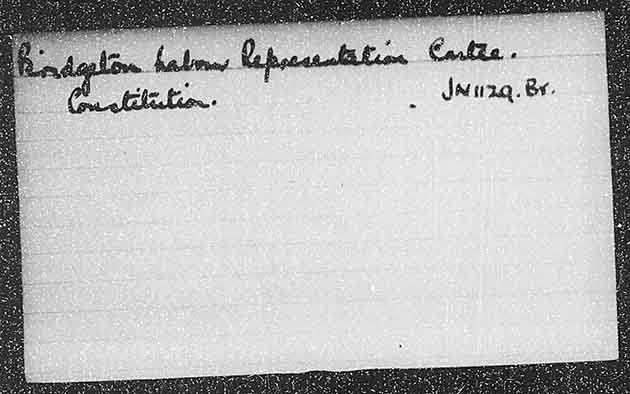 Bridgeton Labour Representation Cmttee.
Constitution. JN1129.Br.